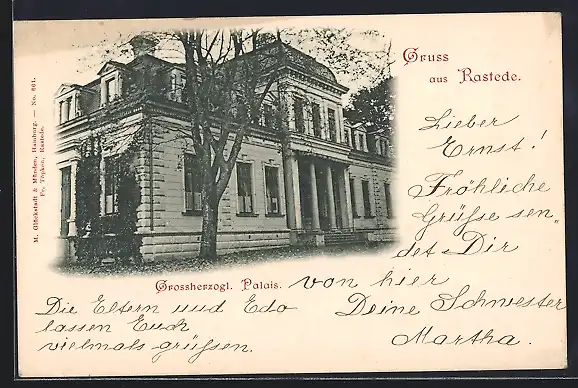 Gruss
aus Rastede.
M. Glückstadt & Münden, Hamburg. — No. 861.
Fr. Töpken, Rastede.
Grossherzogl. Palais.
Lieber
Ernst!
Fröhliche
Grüße sen„
det Dir
von hier
Deine Schwester
Martha.
Die Eltern und Edo
lassen Euch
vielmals grüßen.